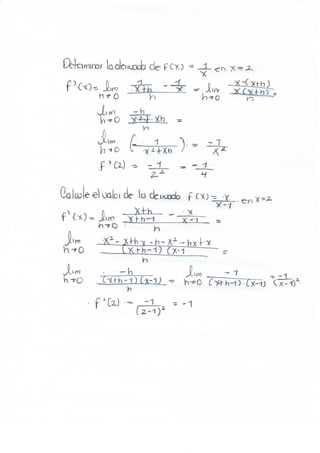 Determinar la derivada de f(x) = 1/x en x=2
f'(x) = lim h→0 (1/(x+h) - 1/x)/h = lim h→0 ((x-(x+h))/(x(x+h)))/h
lim h→0 (-h/(x²+xh))/h =
lim h→0 (-1/(x²+xh)) = -1/x²
f'(2) = -1/2² = -1/4
Calcule el valor de la derivada f(x) = x/(x-1) en x=2
f'(x) = lim h→0 ((x+h)/(x+h-1) - x/(x-1))/h =
lim h→0 ((x²-x+hx-h-x²-hx+x)/((x+h-1)(x-1))/h =
lim h→0 (-h/((x+h-1)(x-1)))/h = lim h→0 -1/((x+h-1)·(x-1)) = -1/(x-1)²
f'(2) = -1/(2-1)² = -1